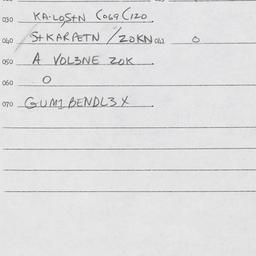 030 KA·LOStN C069C120
040 StKARPETN /20KN 061 0
050 A VOL3NE 20K
060 0
070 GUM1BENDL3X